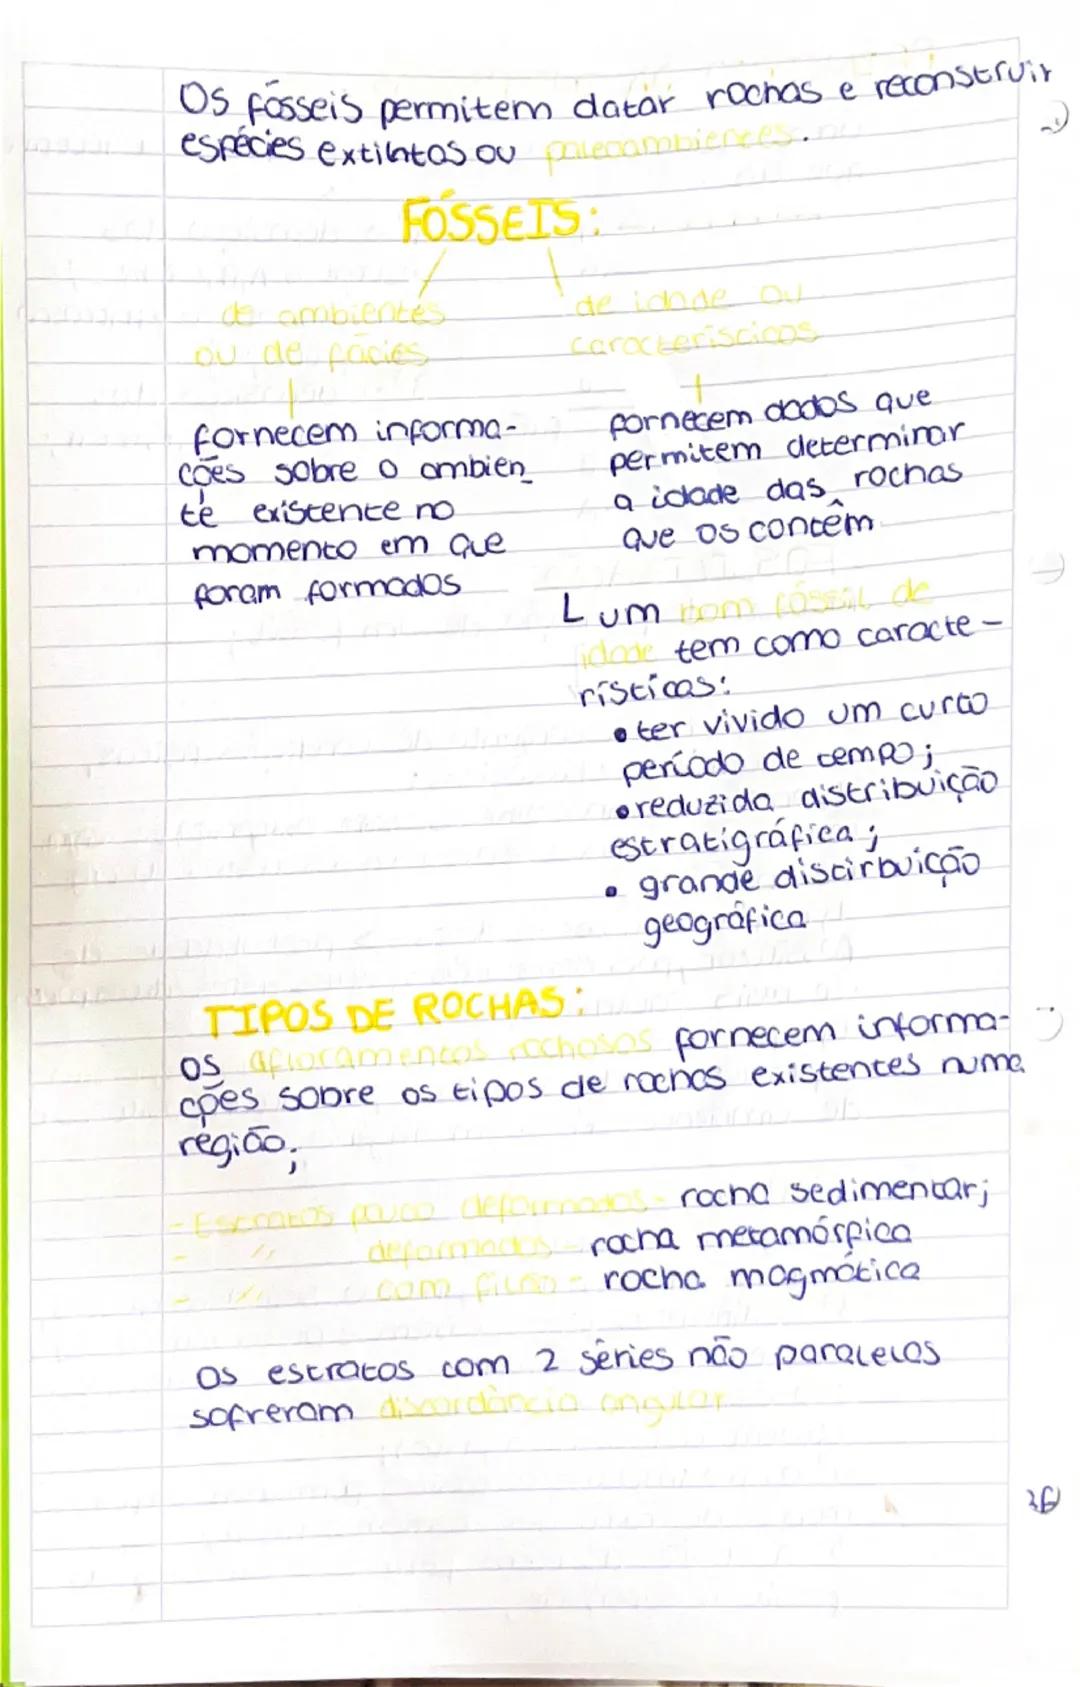 Os fósseis permitem datar rochas e reconstruir
espécies extintos ou paleoambientes.
FÓSSEIS:
de ambientes
ou de fácies
fornecem informa-
ções sobre o ambien_
te existente no
momento em que
foram formados
de idade ou
característicos
fornecem dados que
permitem determinar
a idade das rochas
que os contêm
L um bom fóssil de
idade tem como caracte-
rísticas:
• ter vivido um curto
período de tempo;
• reduzida distribuição
estratigráfica;
• grande discirbuição
geográfica
TIPOS DE ROCHAS:
os afloramentos rochosos fornecem informa-
ções sobre os tipos de rochas existentes numa
região;
- Estratos pouco deformados - rocha sedimentar;
- " deformados - rocha metamórfica
- " com filão - rocha magmática
Os estratos com 2 séries não paralelas
sofreram discordância angular